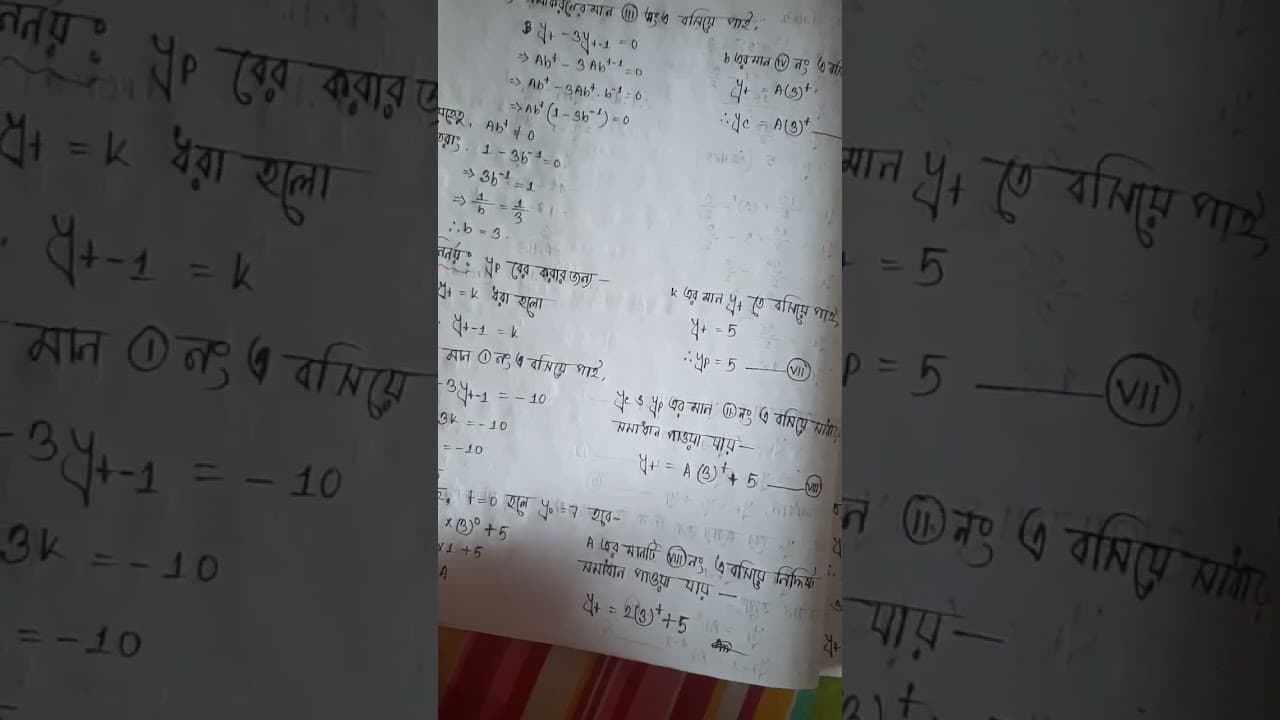 সমীকরনের মান (III) নং এ বসিয়ে পাই,
yt - 3yt-1 = 0
⇒ Ab^t - 3Ab^t-1 = 0
⇒ Ab^t - 3Ab^t . b^-1 = 0
⇒ Ab^t (1 - 3b^-1) = 0
Ab^t ≠ 0
1 - 3b^-1 = 0
⇒ 3b^-1 = 1
⇒ 1/b = 1/3
∴ b = 3.
b এর মান (IV) নং এ
yt = A(3)^t
∴ yc = A(3)^t
নির্নয়: yp বের করার জন্য -
yt = k ধরা হলো
yt-1 = k
মান (I) নং এ বসিয়ে পাই,
-3yt-1 = -10
3k = -10
= -10
k এর মান yt তে বসিয়ে পাই,
yt = 5
∴ yp = 5 (VII)
yc ও yp এর মান (II) নং এ বসিয়ে
সমাধান পাওয়া যায় -
yt = A(3)^t + 5 (VIII)
t=0 হলে y0 = 7 হবে -
x(3)^0 + 5
x1 + 5
A
A এর মানটি (VIII) নং এ বসিয়ে নির্দিষ্ট
সমাধান পাওয়া যায় -
yt = 2(3)^t + 5